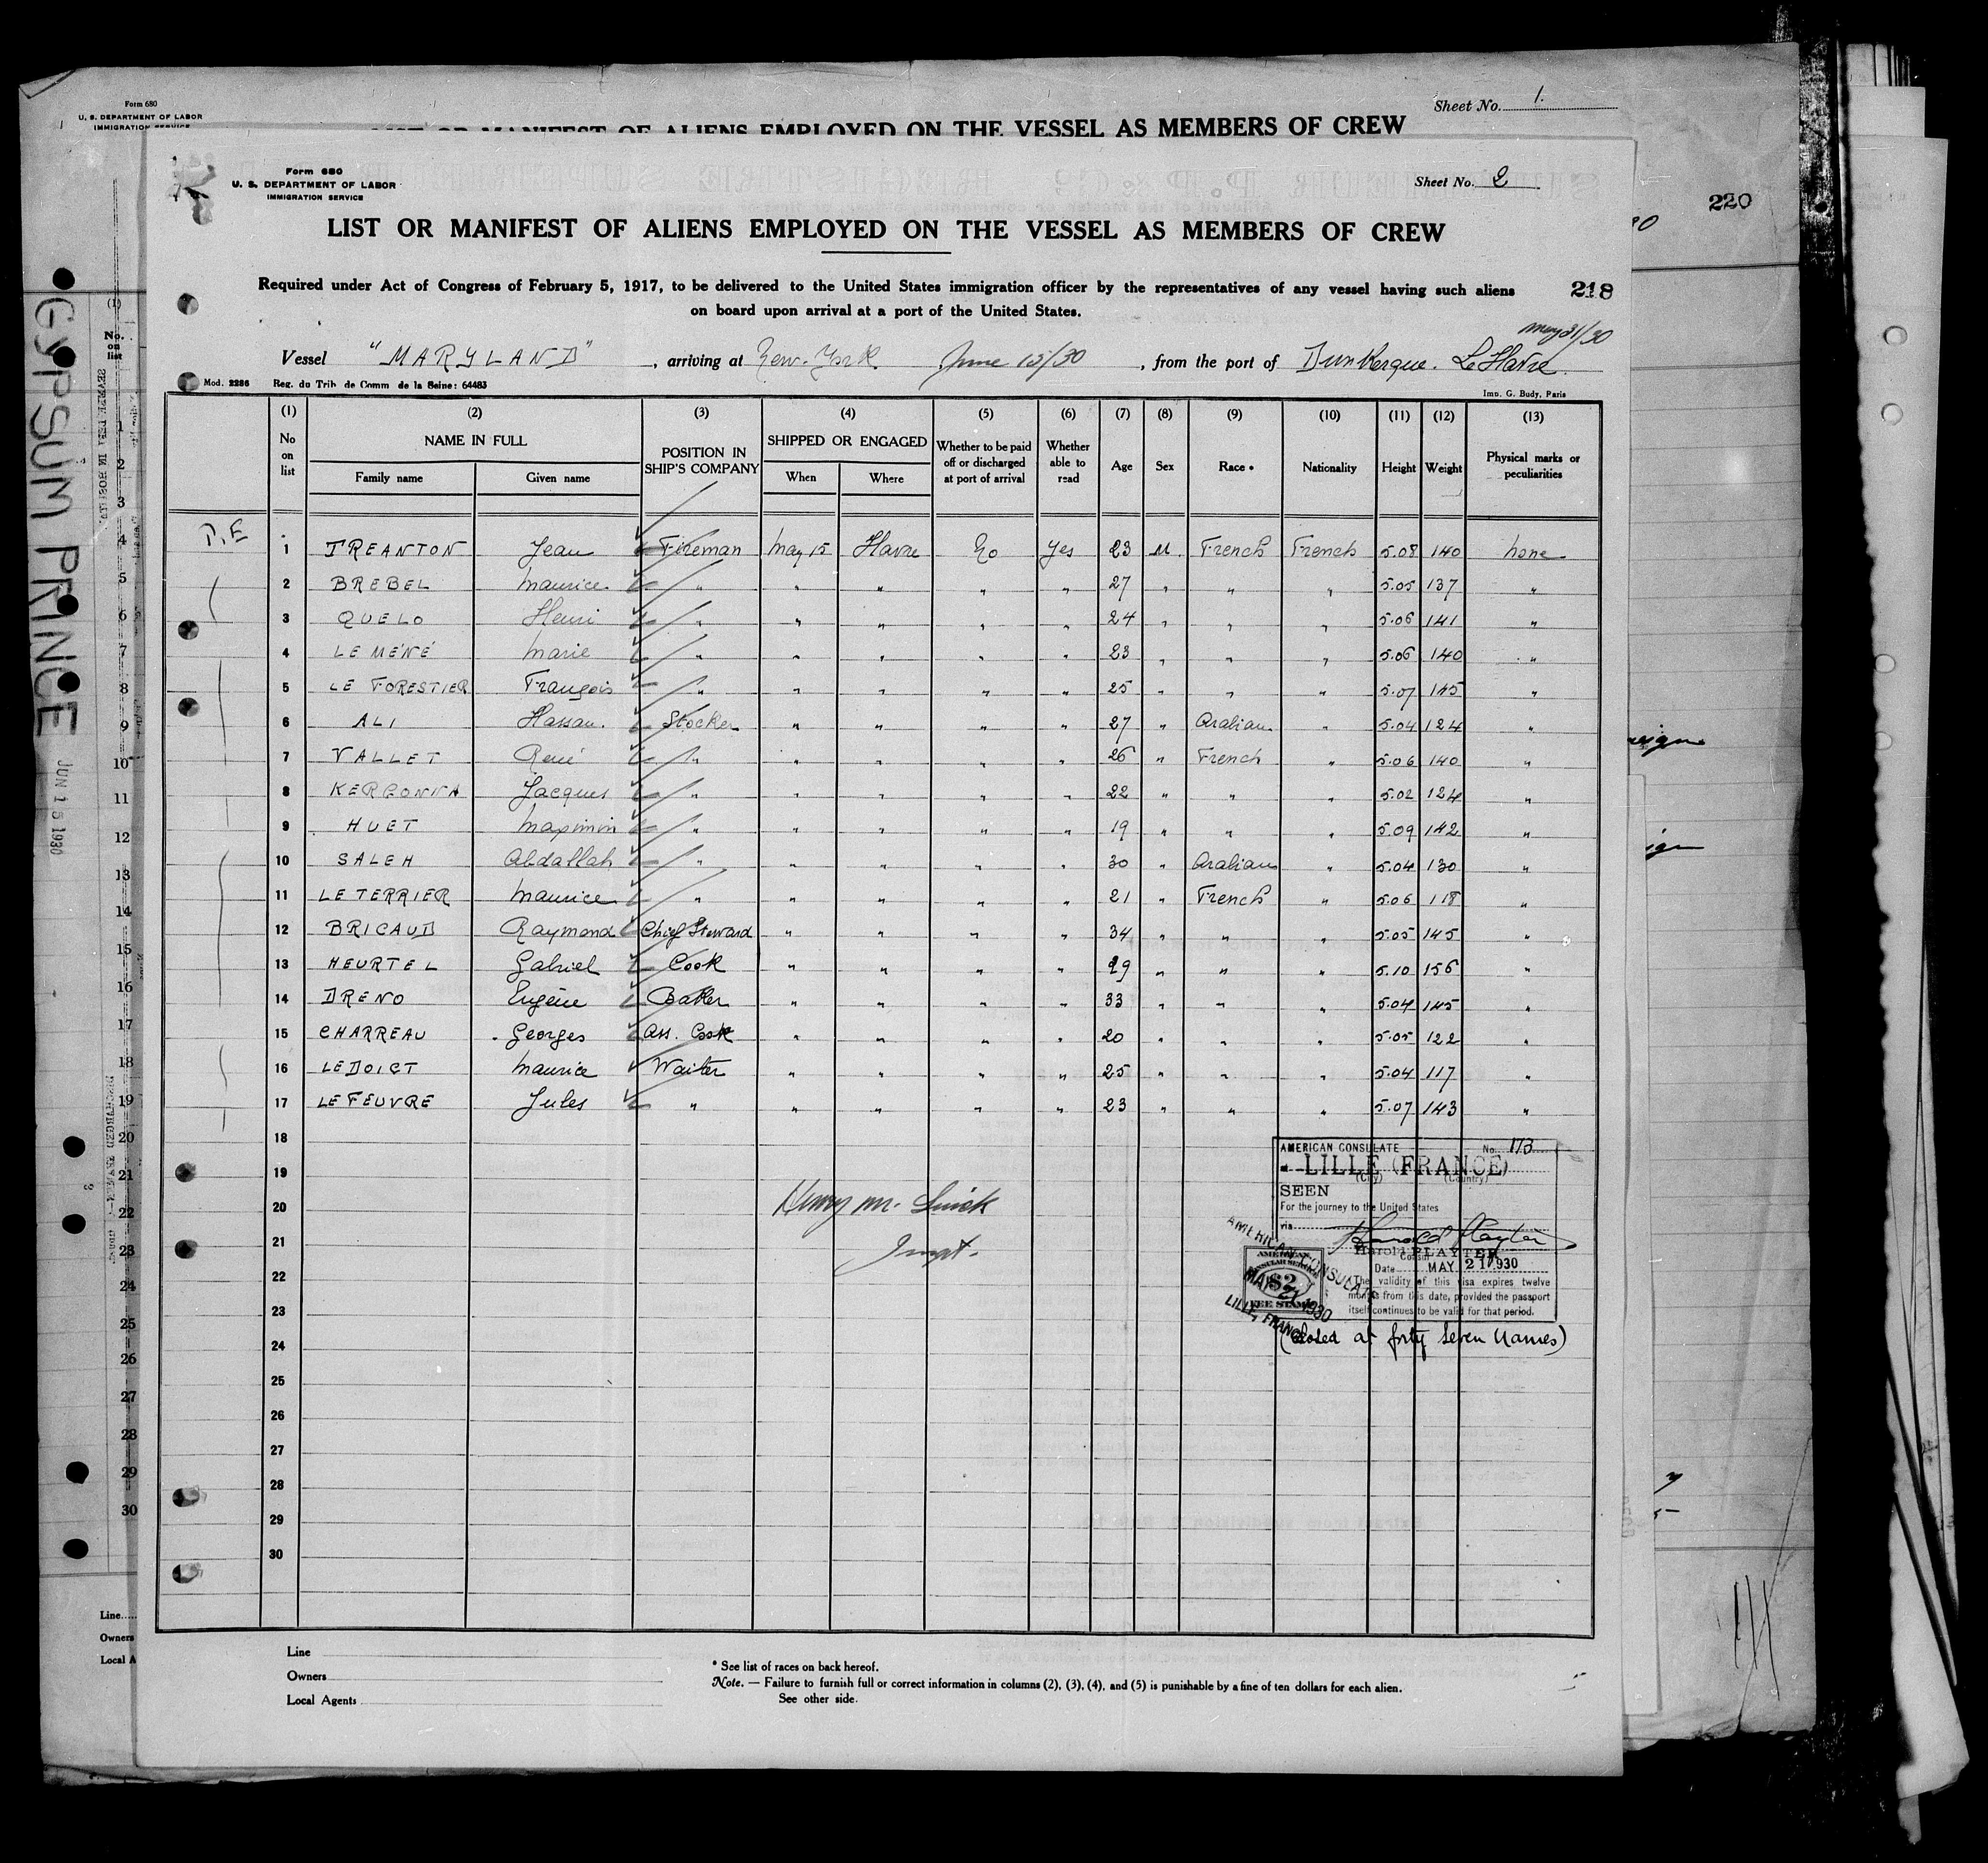 Form 680
U. S. DEPARTMENT OF LABOR
IMMIGRATION SERVICE
Sheet No. 1.
LIST OR MANIFEST OF ALIENS EMPLOYED ON THE VESSEL AS MEMBERS OF CREW
220
GYPSUM PRINCE
JUN 15 1930
Form 680
U. S. DEPARTMENT OF LABOR
IMMIGRATION SERVICE
Sheet No. 2
LIST OR MANIFEST OF ALIENS EMPLOYED ON THE VESSEL AS MEMBERS OF CREW
Required under Act of Congress of February 5, 1917, to be delivered to the United States immigration officer by the representatives of any vessel having such aliens
on board upon arrival at a port of the United States.
218
May 31/30
Vessel "MARYLAND", arriving at New-York June 15/30, from the port of Dunkerque. Le Havre.
Mod. 2286 Reg. du Trib. de Comm. de la Seine: 64483 Imp. G. Budy, Paris
(1) (2) (3) (4) (5) (6) (7) (8) (9) (10) (11) (12) (13)
No on list NAME IN FULL Family name Given name POSITION IN SHIP'S COMPANY SHIPPED OR ENGAGED When Where Whether to be paid off or discharged at port of arrival Whether able to read Age Sex Race * Nationality Height Weight Physical marks or peculiarities
1 TREANTON Jean Fireman May 15 Havre No Yes 23 M. French French 5.08 140 none
2 BREBEL Maurice " " " " " 27 " " " 5.05 137 "
3 QUELO Henri " " " " " 24 " " " 5.06 141 "
4 LE MÉNÉ Marie " " " " " 23 " " " 5.06 140 "
5 LE FORESTIER François " " " " " 25 " " " 5.07 145 "
6 ALI Hassan. Stocker " " " " 27 " Arabian " 5.04 124 "
7 VALLET René " " " " " 26 " French " 5.06 140 "
8 Jacques " " " " " 22 " " " 5.02 124 "
9 HUET Maximin " " " " " 19 " " " 5.09 142 "
10 SALEH Abdallah " " " " " 30 " Arabian " 5.04 130 "
11 LE TERRIER Maurice " " " " " 21 " French " 5.06 118 "
12 BRICAUD Raymond Chief Steward " " " " 34 " " " 5.05 145 "
13 HEURTEL Gabriel Cook " " " " 29 " " " 5.10 156 "
14 DRENO Eugène Baker " " " " 33 " " " 5.04 145 "
15 CHARREAU Georges Ass. Cook " " " " 20 " " " 5.05 122 "
16 LEDOICT Maurice Waiter " " " " 25 " " " 5.04 117 "
17 LE FEUVRE Jules " " " " " 23 " " " 5.07 143 "
18
19
20
21
22
23
24
25
26
27
28
29
30
Inspt.
AMERICAN CONSULATE No. 173
at LILLE (FRANCE)
(City) (Country)
SEEN
For the journey to the United States
via
Harold Playter
Harold PLAYTER
Consul
Date MAY 21 1930
The validity of this visa expires twelve
months from this date, provided the passport
itself continues to be valid for that period.
AMERICAN CONSULATE
MAY 21 1930
LILLE, FRANCE
AMERICAN CONSULAR SERVICE $2 FEE STAMP
(Closed at forty seven names)
Line
Owners
Local Agents
* See list of races on back hereof.
Note. — Failure to furnish full or correct information in columns (2), (3), (4), and (5) is punishable by a fine of ten dollars for each alien.
See other side.